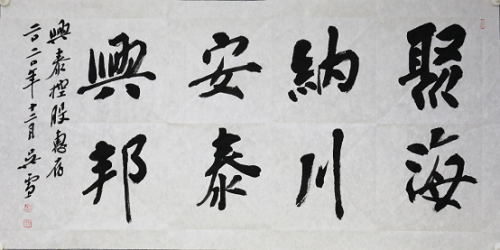 聚海
納川
安泰
興邦
興泰控股惠存
二〇二〇年十二月吴雪